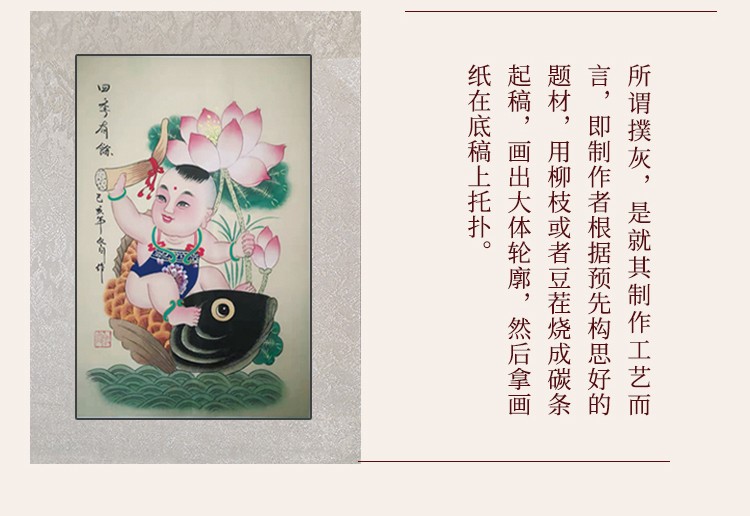 所谓撲灰，是就其制作工艺而
言，即制作者根据预先构思好的
题材，用柳枝或者豆茬烧成碳条
起稿，画出大体轮廓，然后拿画
纸在底稿上托扑。
四季有馀
己亥年
作